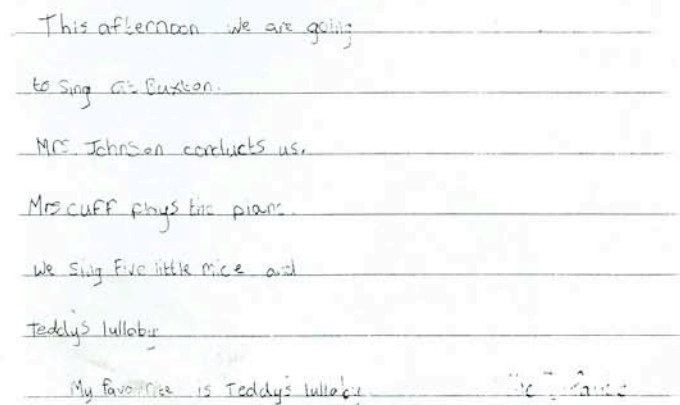 This afternoon we are going
to sing at Buxton.
Mrs. Johnson conducts us.
Mrs CUFF plays the piano.
We sing Five little mice and
Teddy's lullaby
My favourite is Teddy's lullaby